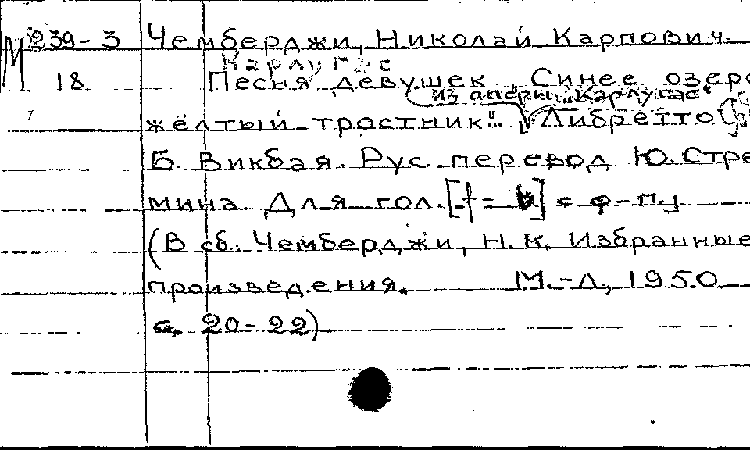 М 239-3 Чемберджи, Николай Карпович.
Карлугас
18 Песня девушек „Синее озеро
из оперы „Карлугас"
жёлтый тростник". Либретто
Б. Викбая. Рус. перевод Ю. Стре
мина. Для гол. [ ] с ф-п.
(В сб. Чемберджи, Н. К. Избранные
произведения. М.-Л., 1950
с. 20-22)